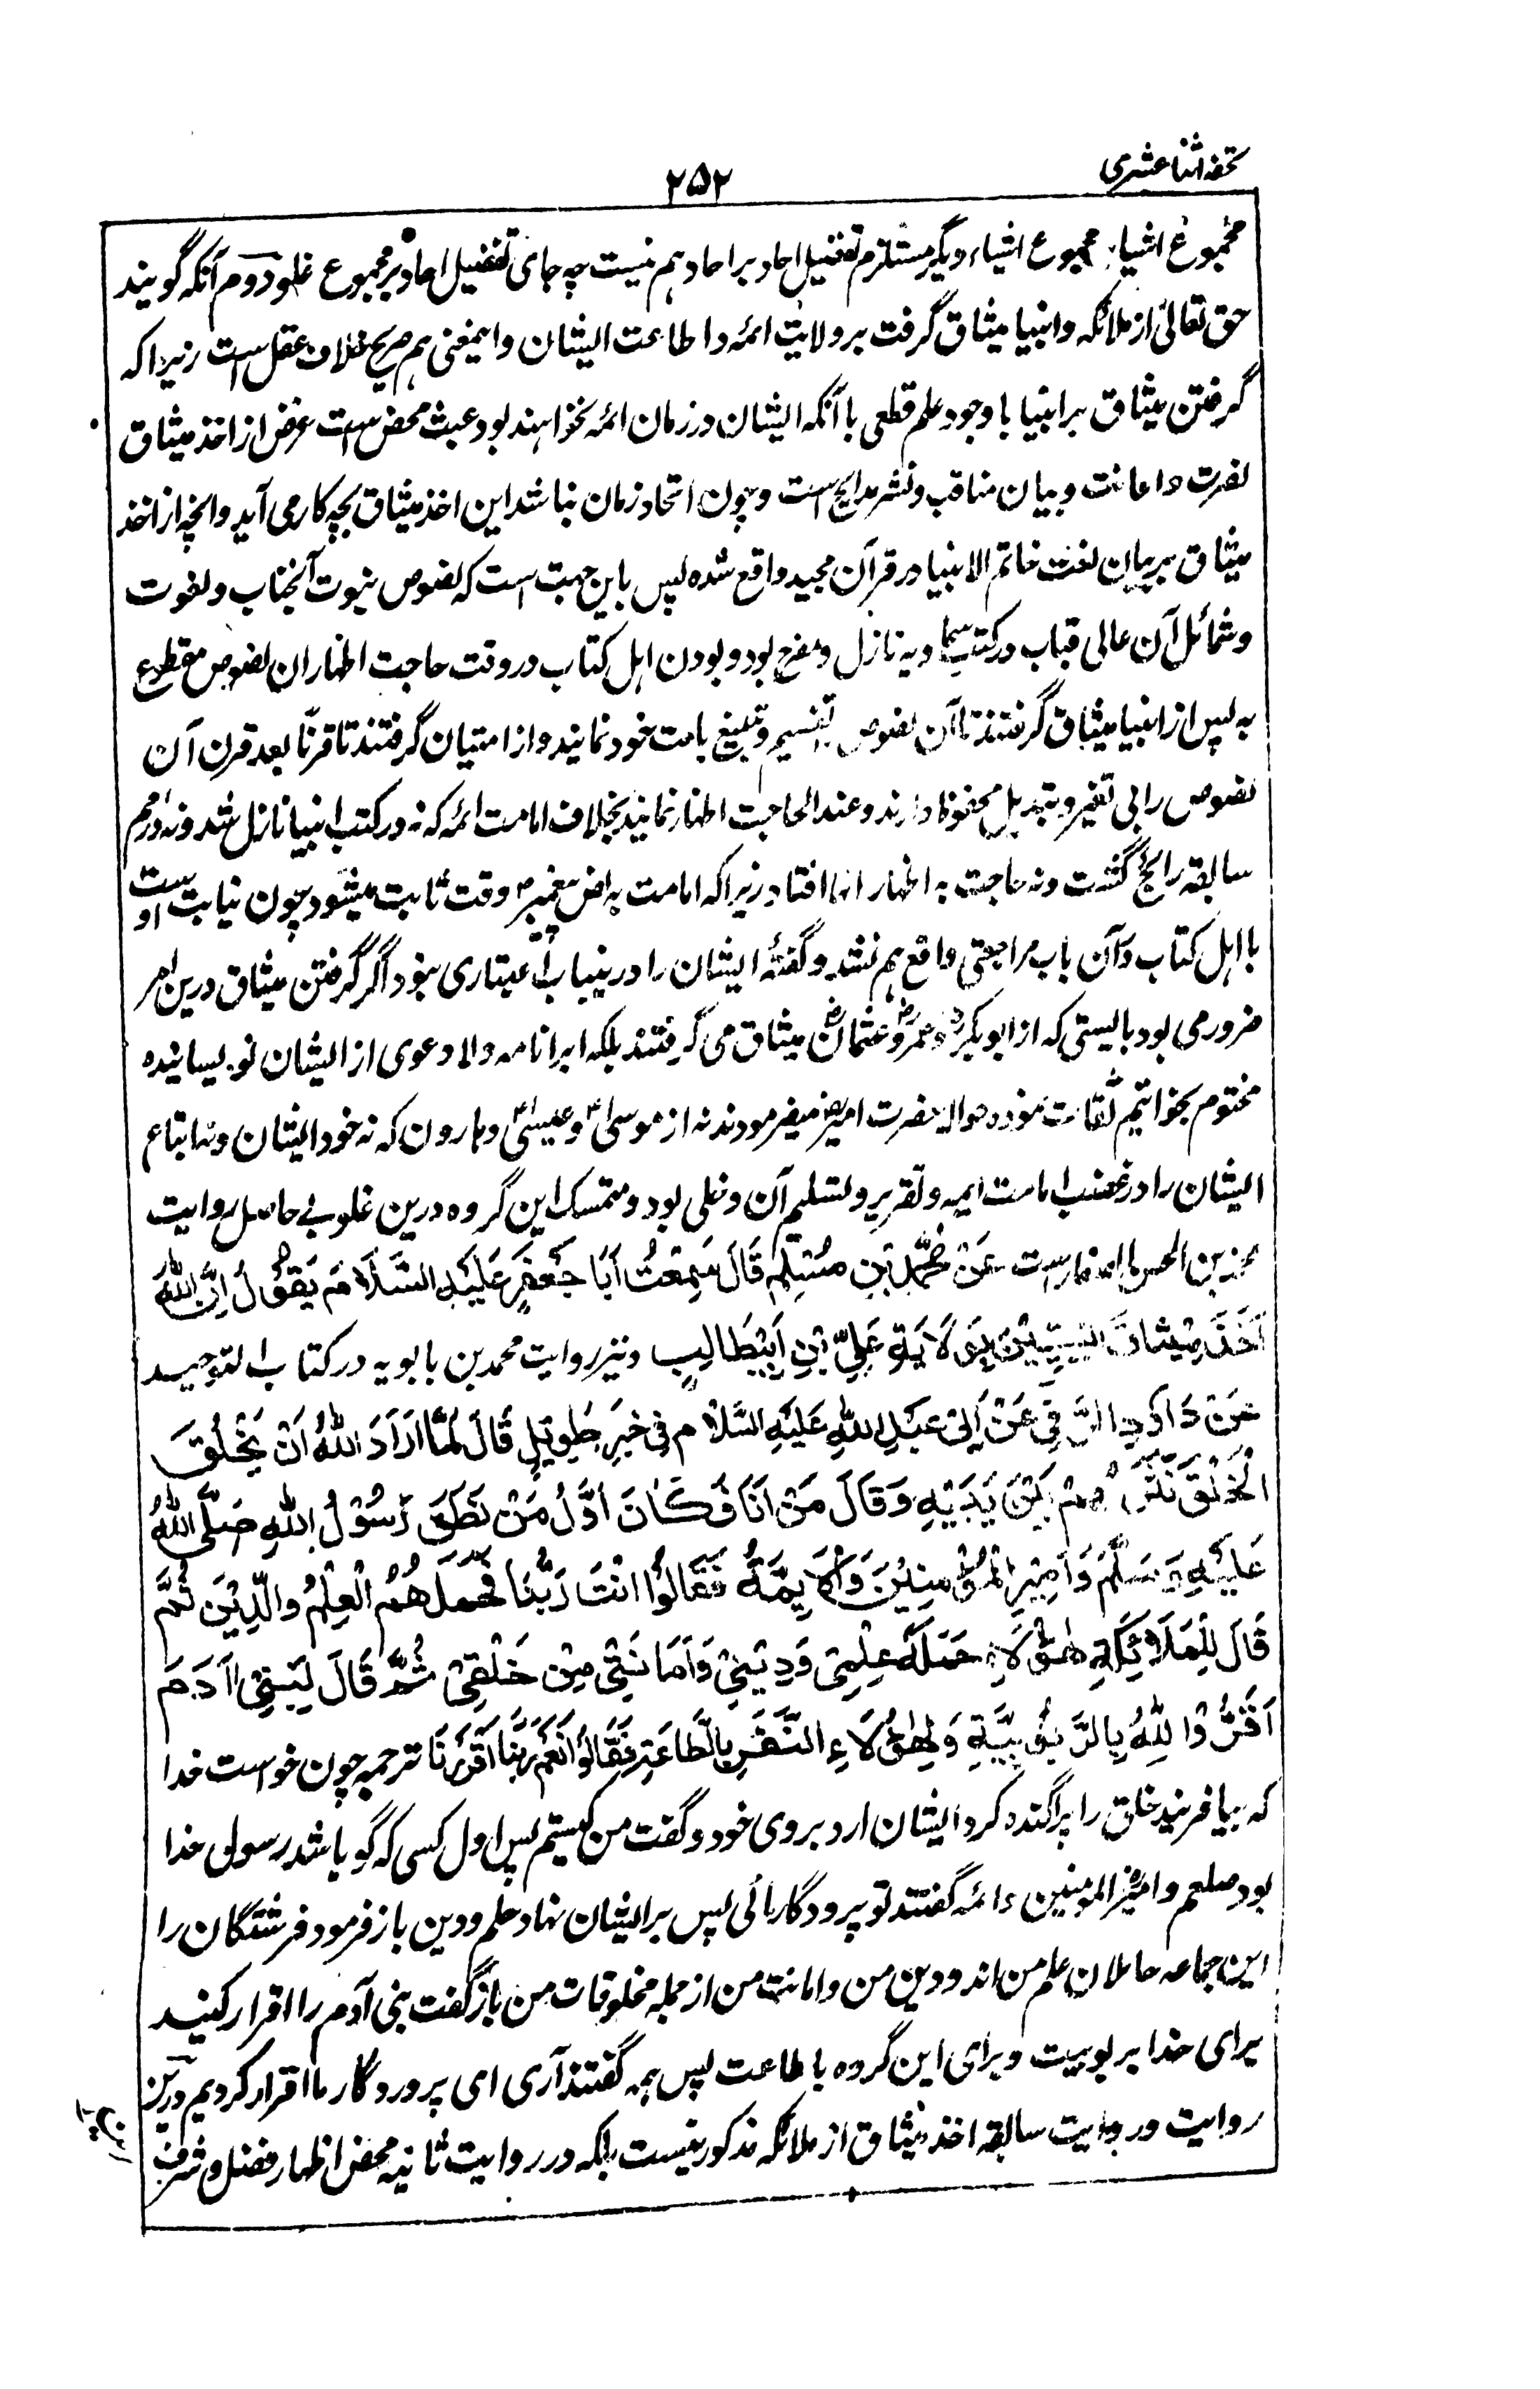 تحفه اثنا عشری
۲۵۲
مجموع اشیا بر مجموع اشیاء دیگر مستلزم تفضیل احاد بر احاد هم نیست چه جای تفضیل احاد بر مجموع غلو دوم آنکه گویند
حق تعالی از ملائکه و انبیا میثاق گرفت بر ولایت ائمه و اطاعت ایشان و اینمعنی هم صریح خلاف عقل است زیرا که
گرفتن میثاق بر انبیا با وجود علم قطعی با آنکه ایشان در زمان ائمه نخواهند بود عبث محض است غرض از اخذ میثاق
نصرت و اعانت و بیان مناقب و نشر مدایح است و چون اتحاد زمان نباشد این اخذ میثاق بچه کار می آید و انچه از اخذ
میثاق پیغمبران نعت خاتم الانبیا در قرآن مجید واقع شده پس باین جهت است که نصوص نبوت آنجناب و نعوت
و شمائل آن عالی قباب در کتب سماویه نازل و مفرح بود و بودن اهل کتاب در وقت حاجت اظهار ان نصوص مقطوع
به پس از انبیا میثاق گرفتند تا آن نصوص بتفسیم و تبلیغ بامت خود نمایند و از امتیان گرفتند تا قرنا بعد قرن آن
نصوص را بی تغیر و تبدیل محفوظ دارند و عند الحاجت اظهار نمایند بخلاف امامت ائمه که نه در کتب انبیا نازل شد و نه در امم
سابقه رائج گشت و نه حاجت به اظهار انها افتاد زیرا که امامت به نص پیغمبر وقت ثابت میشود چون نیابت اوست
با اهل کتاب در آن باب مراجعتی واقع هم نشد و گفتۀ ایشان را درینباب اعتباری نبود اگر گرفتن میثاق درین امر
ضرور می بود بایستی که از ابوبکر و عمر و عثمان میثاق می گرفتند بلکه ابرا نامه و لا دعوی از ایشان نویسانیده
مختوم بخواتیم ثقات نموده حواله حضرت امیر میفرمودند نه از موسی و عیسی و هارون که نه خود ایشان و نه اتباع
ایشان را در غصب امامت ایمه و تقریر و تسلیم آن دخلی بود و متمسک این گروه درین غلو بی حاصل روایت
محمد بن الحسن الصفار است عَنْ مُحَمَّدِ بْنِ مُسْلِمٍ قَالَ سَمِعْتُ اَبَا جَعْفَرٍ عَلَیْهِ السَّلَامُ یَقُوْلُ اِنَّ اللّٰهَ
اَخَذَ مِیْثَاقَ النَّبِیِّیْنَ بِوَلَایَةِ عَلِیِّ بْنِ اَبِیْطَالِبٍ و نیز روایت محمد بن بابویه در کتاب التوحید
عَنْ دَاوُدَ الرَّقِّیِ عَنْ اَبِیْ عَبْدِ اللّٰهِ عَلَیْهِ السَّلَامُ فِیْ خَبَرٍ طَوِیْلٍ قَالَ لَمَّا اَرَادَ اللّٰهُ اَنْ یَخْلُقَ
الْخَلْقَ نَثَرَهُمْ بَیْنَ یَدَیْهِ وَ قَالَ مَنْ اَنَا فَکَانَ اَوَّلُ مَنْ نَطَقَ رَسُوْلُ اللّٰهِ صَلَّی اللّٰهُ
عَلَیْهِ وَسَلَّمَ وَ اَمِیْرُ الْمُؤْمِنِیْنَ وَالْاَیِمَّةُ فَقَالُوْا اَنْتَ رَبُّنَا فَحَمَلَهُمُ الْعِلْمُ وَالدِّیْنَ ثُمَّ
قَالَ لِلْمَلَائِکَةِ هٰؤُلَاءِ حَمَلَةُ عِلْمِیْ وَ دِیْنِیْ وَ اَمَانَتِیْ مِنْ خَلْقِیْ ثُمَّ قَالَ لِبَنِیْ اٰدَمَ
اَقِرُّوْا لِلّٰهِ بِالرَّبُوْبِیَّةِ وَ لِهٰؤُلَاءِ النَّفَرِ بِالطَّاعَةِ فَقَالُوْا نَعَمْ رَبَّنَا اَقْرَرْنَا ترجمه چون خواست خدا
که بیافریند خلق را پراگنده کرد ایشان ارد بروی خود و گفت من کیستم پس اول کسی که گویا شد رسول خدا
بود صلعم و امیر المومنین و ائمه گفتند تو پروردگار مائی پس بر ایشان نهاد علم و دین باز فرمود فرشتگان را
این جماعه حاملان علم من اند و دین من و امانت من از جمله مخلوقات من باز گفت بنی آدم را اقرار کنید
برای خدا بربوبیت و برای این گروه باطاعت پس همه گفتند آری ای پروردگار ما اقرار کردیم درین
روایت و روایت سابقه اخذ میثاق از ملائکه مذکور نیست بلکه در روایت ثانیه محض اظهار فضل و شرف